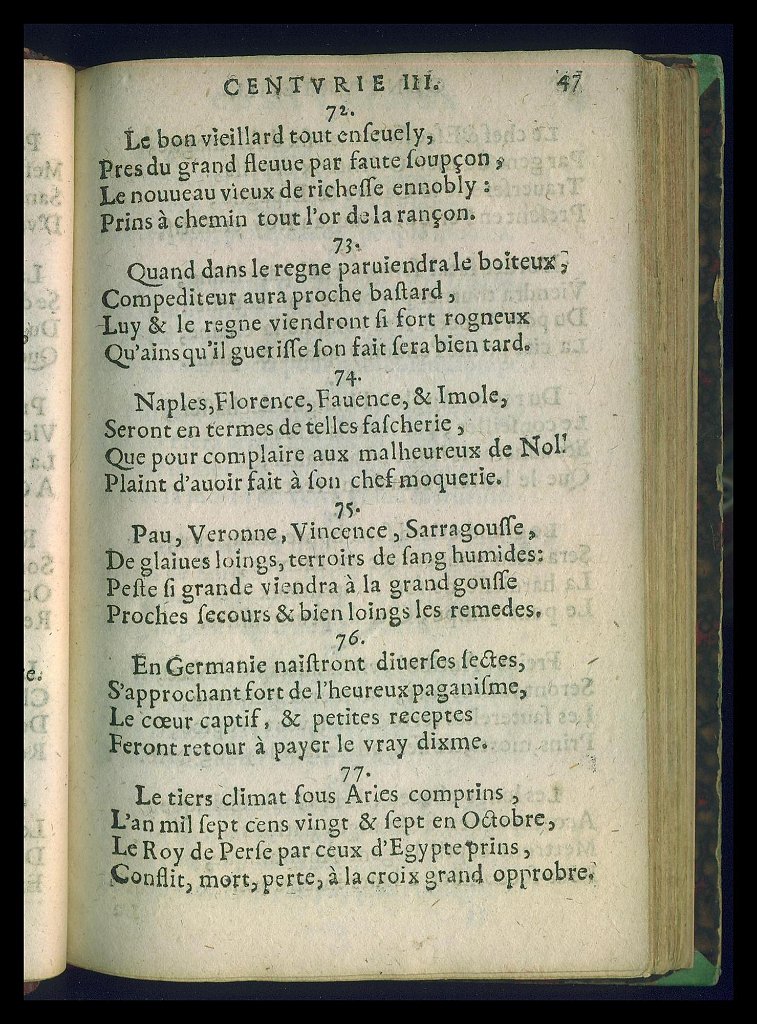 CENTVRIE III. 47
72.
Le bon vieillard tout enſeuely,
Pres du grand fleuue par faute ſoupçon,
Le nouueau vieux de richeſſe ennobly:
Prins à chemin tout l'or de la rançon.
73.
Quand dans le regne paruiendra le boiteux,
Compediteur aura proche baſtard,
Luy & le regne viendront ſi fort rogneux
Qu'ains qu'il gueriſſe ſon fait ſera bien tard.
74.
Naples, Florence, Fauence, & Imole,
Seront en termes de telles faſcherie,
Que pour complaire aux malheureux de Nol!
Plaint d'auoir fait à ſon chef moquerie.
75.
Pau, Veronne, Vincence, Sarragouſſe,
De glaiues loings, terroirs de ſang humides:
Peſte ſi grande viendra à la grand gouſſe
Proches ſecours & bien loings les remedes.
76.
En Germanie naiſtront diuerſes ſectes,
S'approchant fort de l'heureux paganiſme,
Le cœur captif, & petites receptes
Feront retour à payer le vray dixme.
77.
Le tiers climat ſous Aries comprins,
L'an mil ſept cens vingt & ſept en Octobre,
Le Roy de Perſe par ceux d'Egypte prins,
Conflit, mort, perte, à la croix grand opprobre.